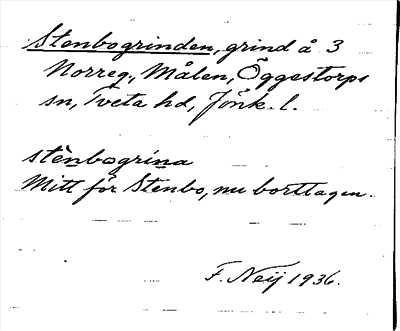 Stenbogrinden, grind å 3
Norreg., Målen, Öggestorps
sn, Tveta hd, Jönk. l.
stènbogrina
Mitt för Stenbo, nu borttagen.
F. Neij 1936.